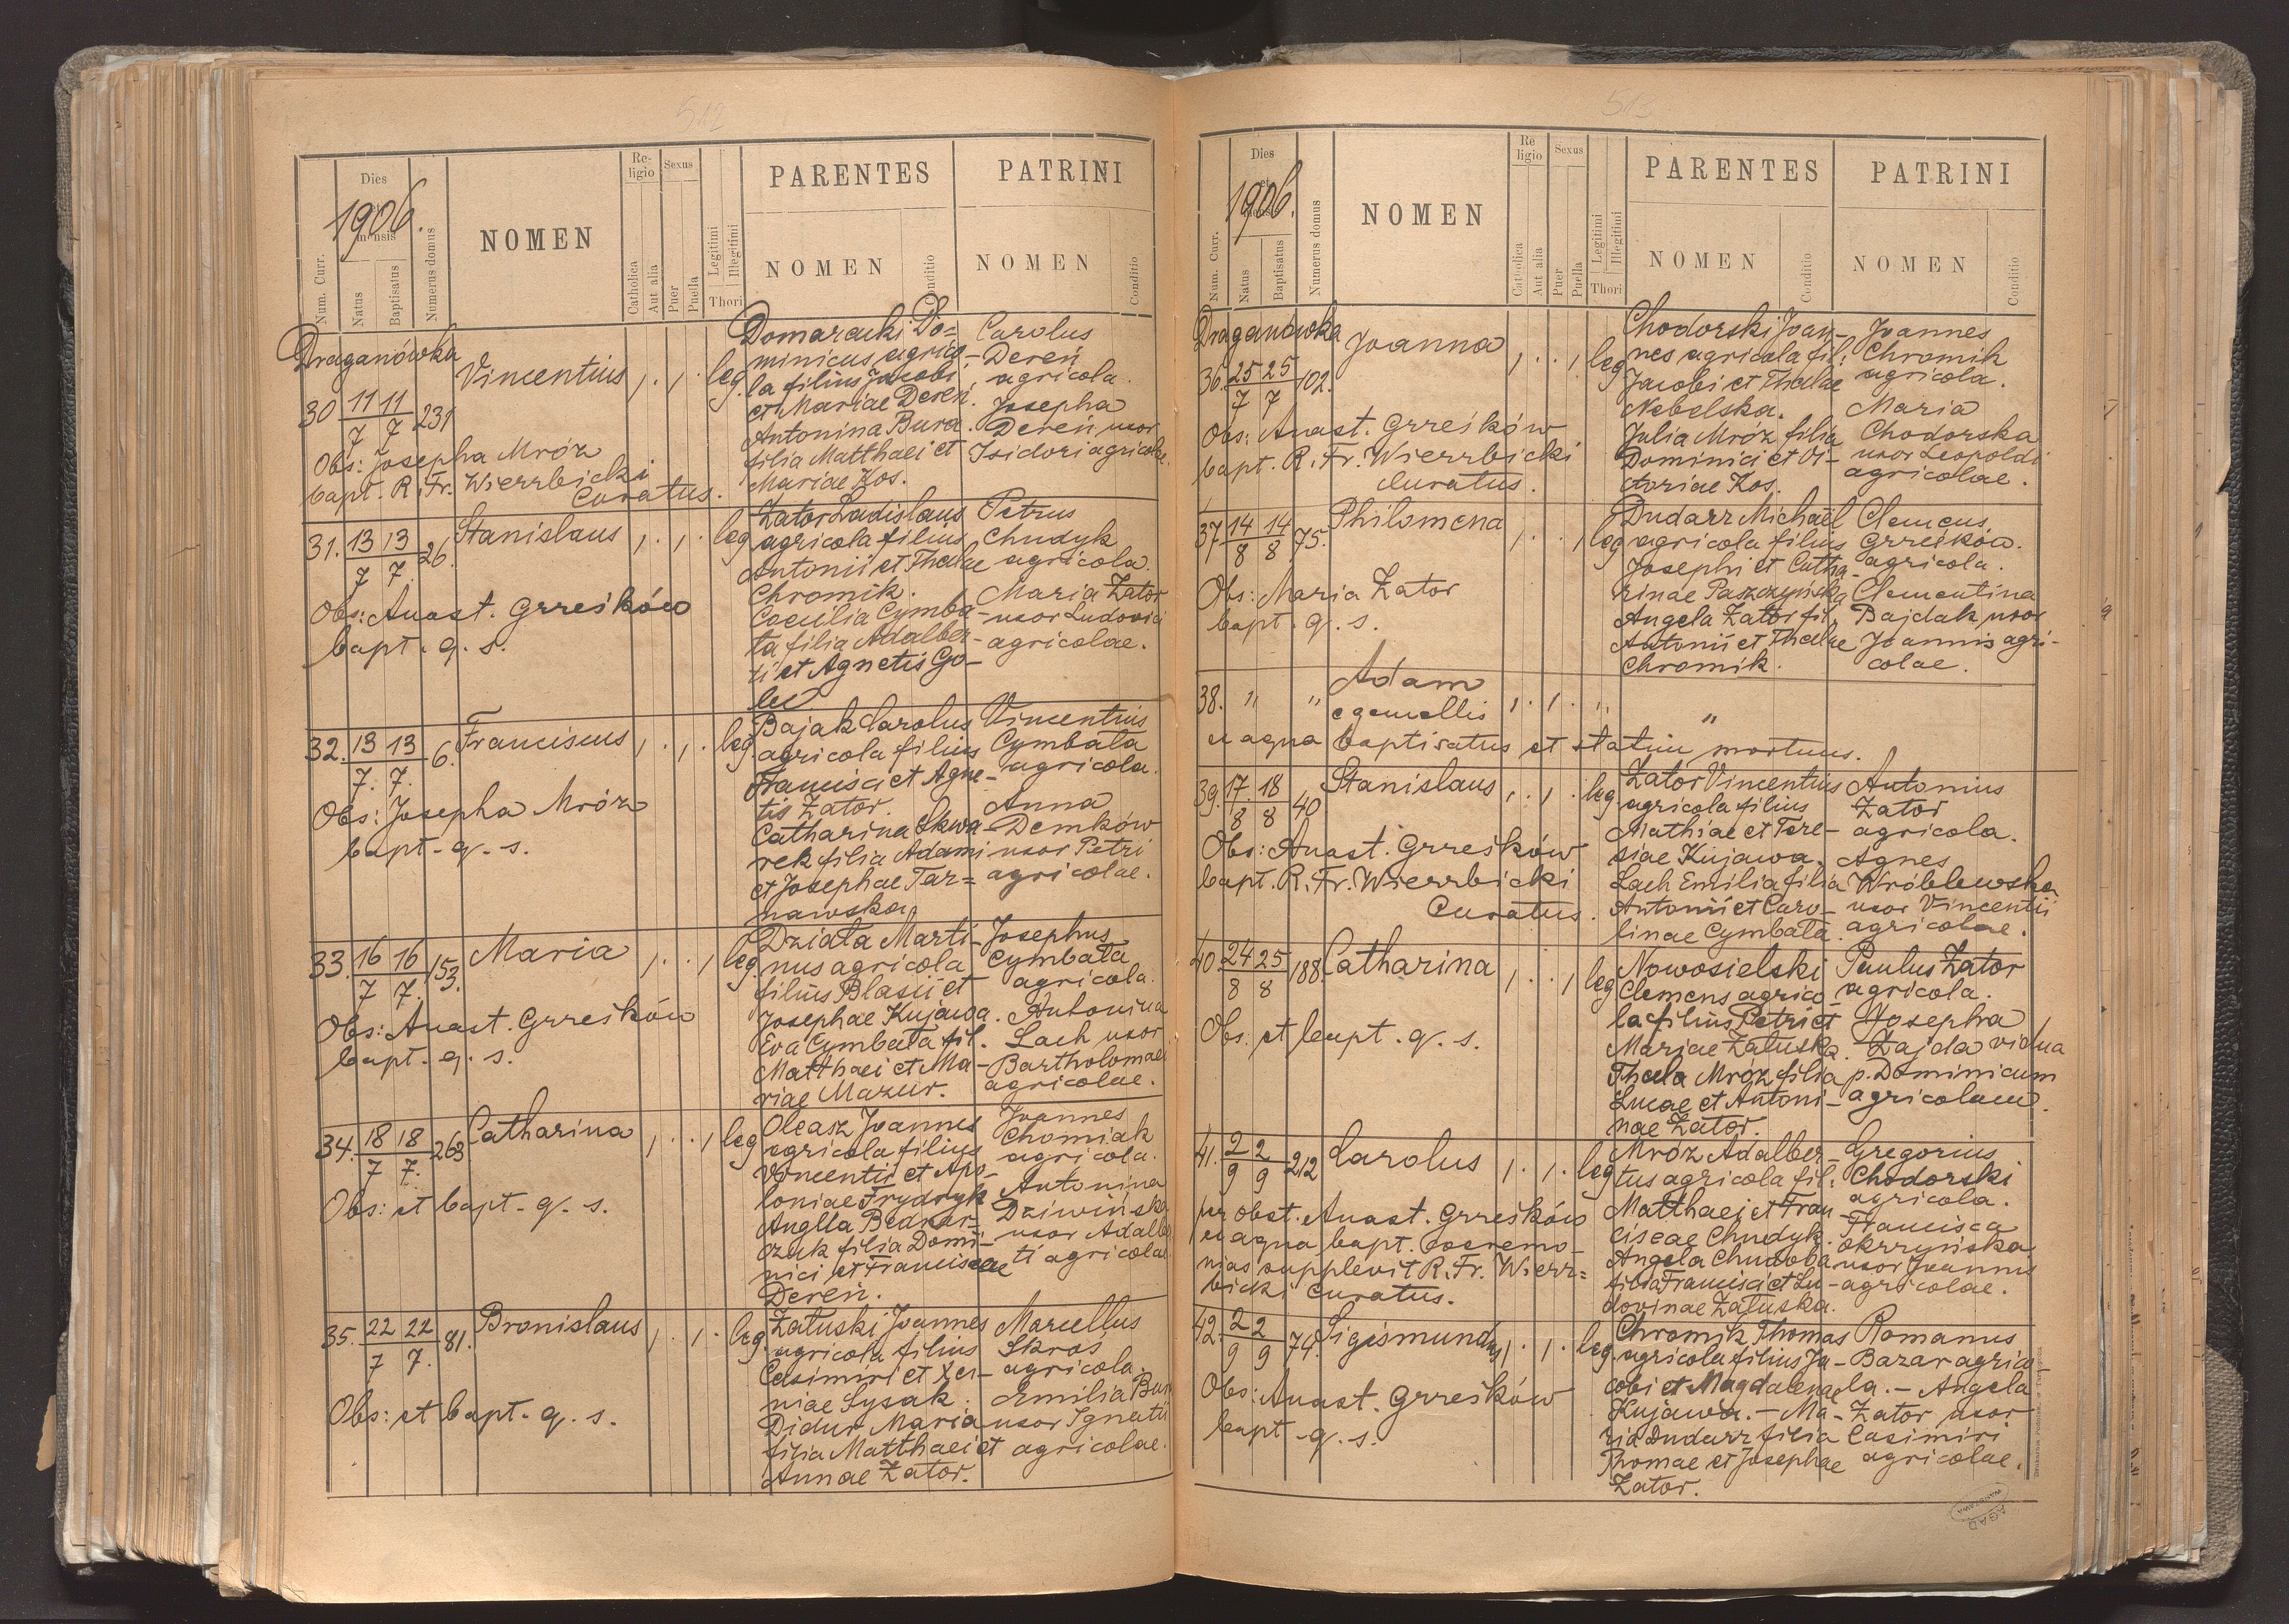 512
Dies
et
mensis
1906.
Num. Curr.
Natus
Baptisatus
Numerus domus
NOMEN
Re-
ligio
Catholica
Aut alia
Sexus
Puer
Puella
Legitimi
Illegitimi
Thori
PARENTES
NOMEN
Conditio
PATRINI
NOMEN
Conditio
Draganówka
30 11 11 231
7 7
Vincentius , . , . leg.
Obs: Josepha Mróz
bapt. R. Fr. Wierzbicki
Curatus.
Domaracki Do=
minicus agrico-
la filius Jacobi
et Mariae Dereń.
Antonina Bura.
filia Matthaei et
Mariae Kos.
Carolus
Dereń
agricola.
Josepha
Dereń uxor
Isidori agricolae.
31. 13 13 26.
7 7
Stanislaus , . , . leg.
Obs: Anast. Grześków
bapt. q. s.
Zator Ladislaus
agricola filius
Antonii et Theclae
Chromik.
Coecilia Cymba-
ła filia Adalber-
ti et Agnetis Go-
lec
Petrus
Chudyk
agricola.
Maria Zator
uxor Ludovici
agricolae.
32. 13 13 6.
7. 7.
Franciscus , . , . leg.
Obs: Josepha Mróz
bapt. q. s.
Bajak Carolus
agricola filius
Francisci et Agne-
tis Zator.
Catharina Skwa-
rek filia Adami
et Josephae Tar=
nawska.
Vincentius
Cymbała
agricola.
Anna
Demków
uxor Petri
agricolae.
33. 16 16 153.
7 7.
Maria , . . , leg.
Obs: Anast. Grześków
bapt. q. s.
Działa Marti-
nus agricola
filius Blasii et
Josephae Kujawa.
Eva Cymbała fil.
Matthaei et Ma-
riae Mazur.
Josephus
Cymbała
agricola.
Antonina
Lach uxor
Bartholomaei
agricolae.
34. 18 18 263
7 7.
Catharina , . . , leg
Obs: et bapt. q. s.
Oleasz Joannes
agricola filius
Vincentii et Apo-
loniae Frydryk
Angela Bednar-
czuk filia Domi-
nici et Franciscae
Dereń.
Joannes
Chomiak
agricola.
Antonina
Dziwińska
uxor Adalber
ti agricolae
35. 22 22 81.
7 7.
Bronislaus , . , . leg.
Obs: et bapt. q. s.
Załuski Joannes
agricola filius
Casimiri et Xe-
niae Łysak.
Didur Maria
filia Matthaei et
Annae Zator.
Marcellus
Skroś
agricola.
Emilia Bura
uxor Ignatii
agricolae.
513
Dies
et
1906.
Num. Curr.
Natus
Baptisatus
Numerus domus
NOMEN
Re
ligio
Catholica
Aut alia
Sexus
Puer
Puella
Legitimi
Illegitimi
Thori
PARENTES
NOMEN
Conditio
PATRINI
NOMEN
Conditio
Draganówka
36. 25 25 102.
7 7
Joanna , . . , leg
Obs: Anast. Grześków
bapt. R. Fr. Wierzbicki
Curatus.
Chodorski Joan-
nes agricola fil:
Jacobi et Theclae
Nebelska.
Julia Mróz filia
Dominici et Vi-
ctoriae Kos.
Joannes
Chromik
agricola.
Maria
Chodorska
uxor Leopoldi
agricolae.
37. 14 14 75.
8 8
Philomena , . . , leg
Obs: Maria Zator
bapt. q. s.
Dudarz Michaël
agricola filius
Josephi et Catha-
rinae Paszczyńska
Angela Zator fil.
Antonii et Theclae
Chromik.
Clemens
Grześków.
agricola.
Clementina
Bajdak uxor
Joannis agri-
colae.
38. " " Adam
e gemellis , . , . " "
ex aqua baptisatus et statim mortuus.
39. 17. 18 40
8 8
Stanislaus , . , . leg
Obs: Anast. Grześków
bapt. R. Fr. Wierzbicki
Curatus.
Zator Vincentius
agricola filius
Mathiae et Tere-
siae Kujawa.
Lach Emilia filia
Antonii et Caro-
linae Cymbała.
Antonius
Zator
agricola.
Agnes
Wróblewska
uxor Vincentii
agricolae.
40. 24 25 188.
8 8
Catharina , . . , leg
Obs. et bapt. q. s.
Nowosielski
Clemens agrico-
la filius Petri et
Mariae Załuska.
Thecla Mróz filia
Lucae et Antoni-
nae Zator.
Paulus Zator
agricola.
Josepha
Zajda vidua
p. Dominicum
agricolam.
41. 2 2 212
9 9
Carolus , . , . leg
per obst. Anast. Grześków
ex aqua bapt. coeremo-
nias supplevit R. Fr. Wierz=
bicki Curatus.
Mróz Adalber-
tus agricola fil:
Matthaei et Fran-
ciscae Chudyk.
Angela Chudoba
filia Francisci et Lu-
dovinae Załuska.
Gregorius
Chodorski
agricola.
Francisca
Okrzyńska
uxor Joannis
agricolae.
42. 2 2 74.
9 9
Sigismundus , . , . leg.
Obs: Anast. Grześków
bapt. q. s.
Chromik Thomas
agricola filius Ja-
cobi et Magdalenae
Kujawa. - Ma-
ria Dudarz filia
Thomae et Josephae
Zator.
Romanus
Bazar agrico-
la. - Angela
Zator uxor
Casimiri
agricolae.
AGAD